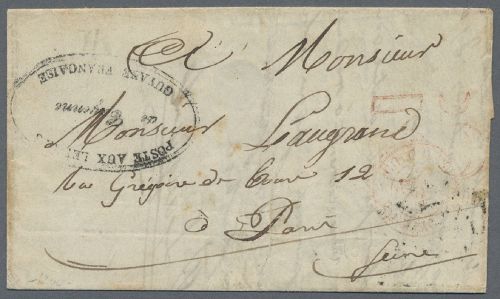 A Monsieur
GUYANE FRANÇAISE
de Cayenne
POSTE AUX LE
Monsieur Laugrand
rue Grégoire de Tours 12
à Paris
Seine